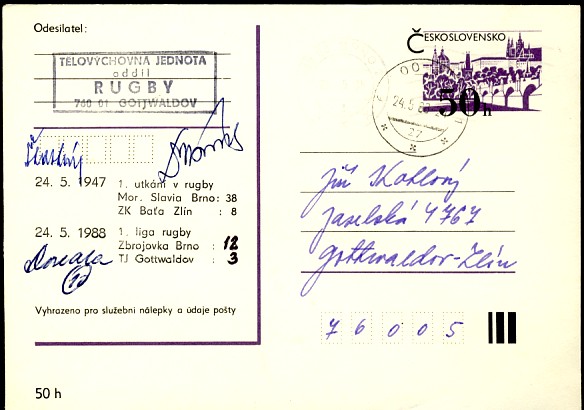 Odesílatel:
TĚLOVÝCHOVNÁ JEDNOTA
oddíl
RUGBY
760 01 GOTTWALDOV
24. 5. 1947 1. utkání v rugby
Mor. Slavia Brno: 38
ZK Baťa Zlín : 8
24. 5. 1988 1. liga rugby
Zbrojovka Brno : 12
TJ Gottwaldov : 3
Vyhrazeno pro služební nálepky a údaje pošty
50 h
ČESKOSLOVENSKO
50 h
24.5.
27
Jiří
Jaselská 4767
Gottwaldov-Zlín
76005